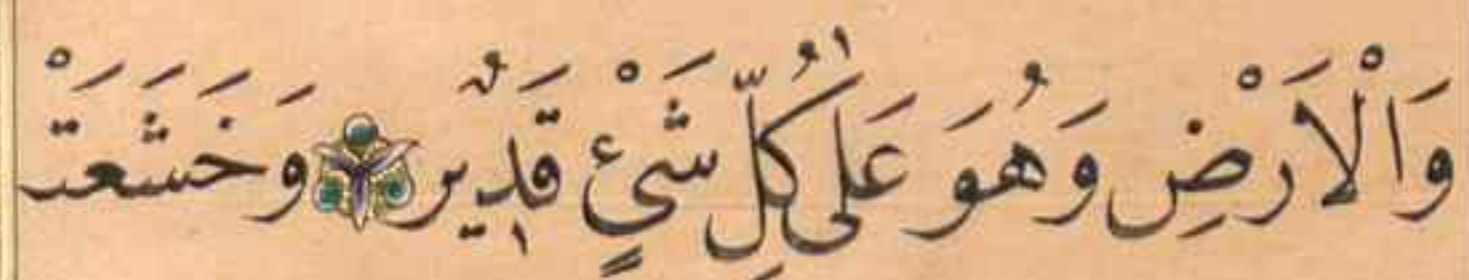 وَالْاَرْضِ وَهُوَ عَلٰى كُلِّ شَىْءٍ قَدٖيرٌ وَخَشَعَتْ